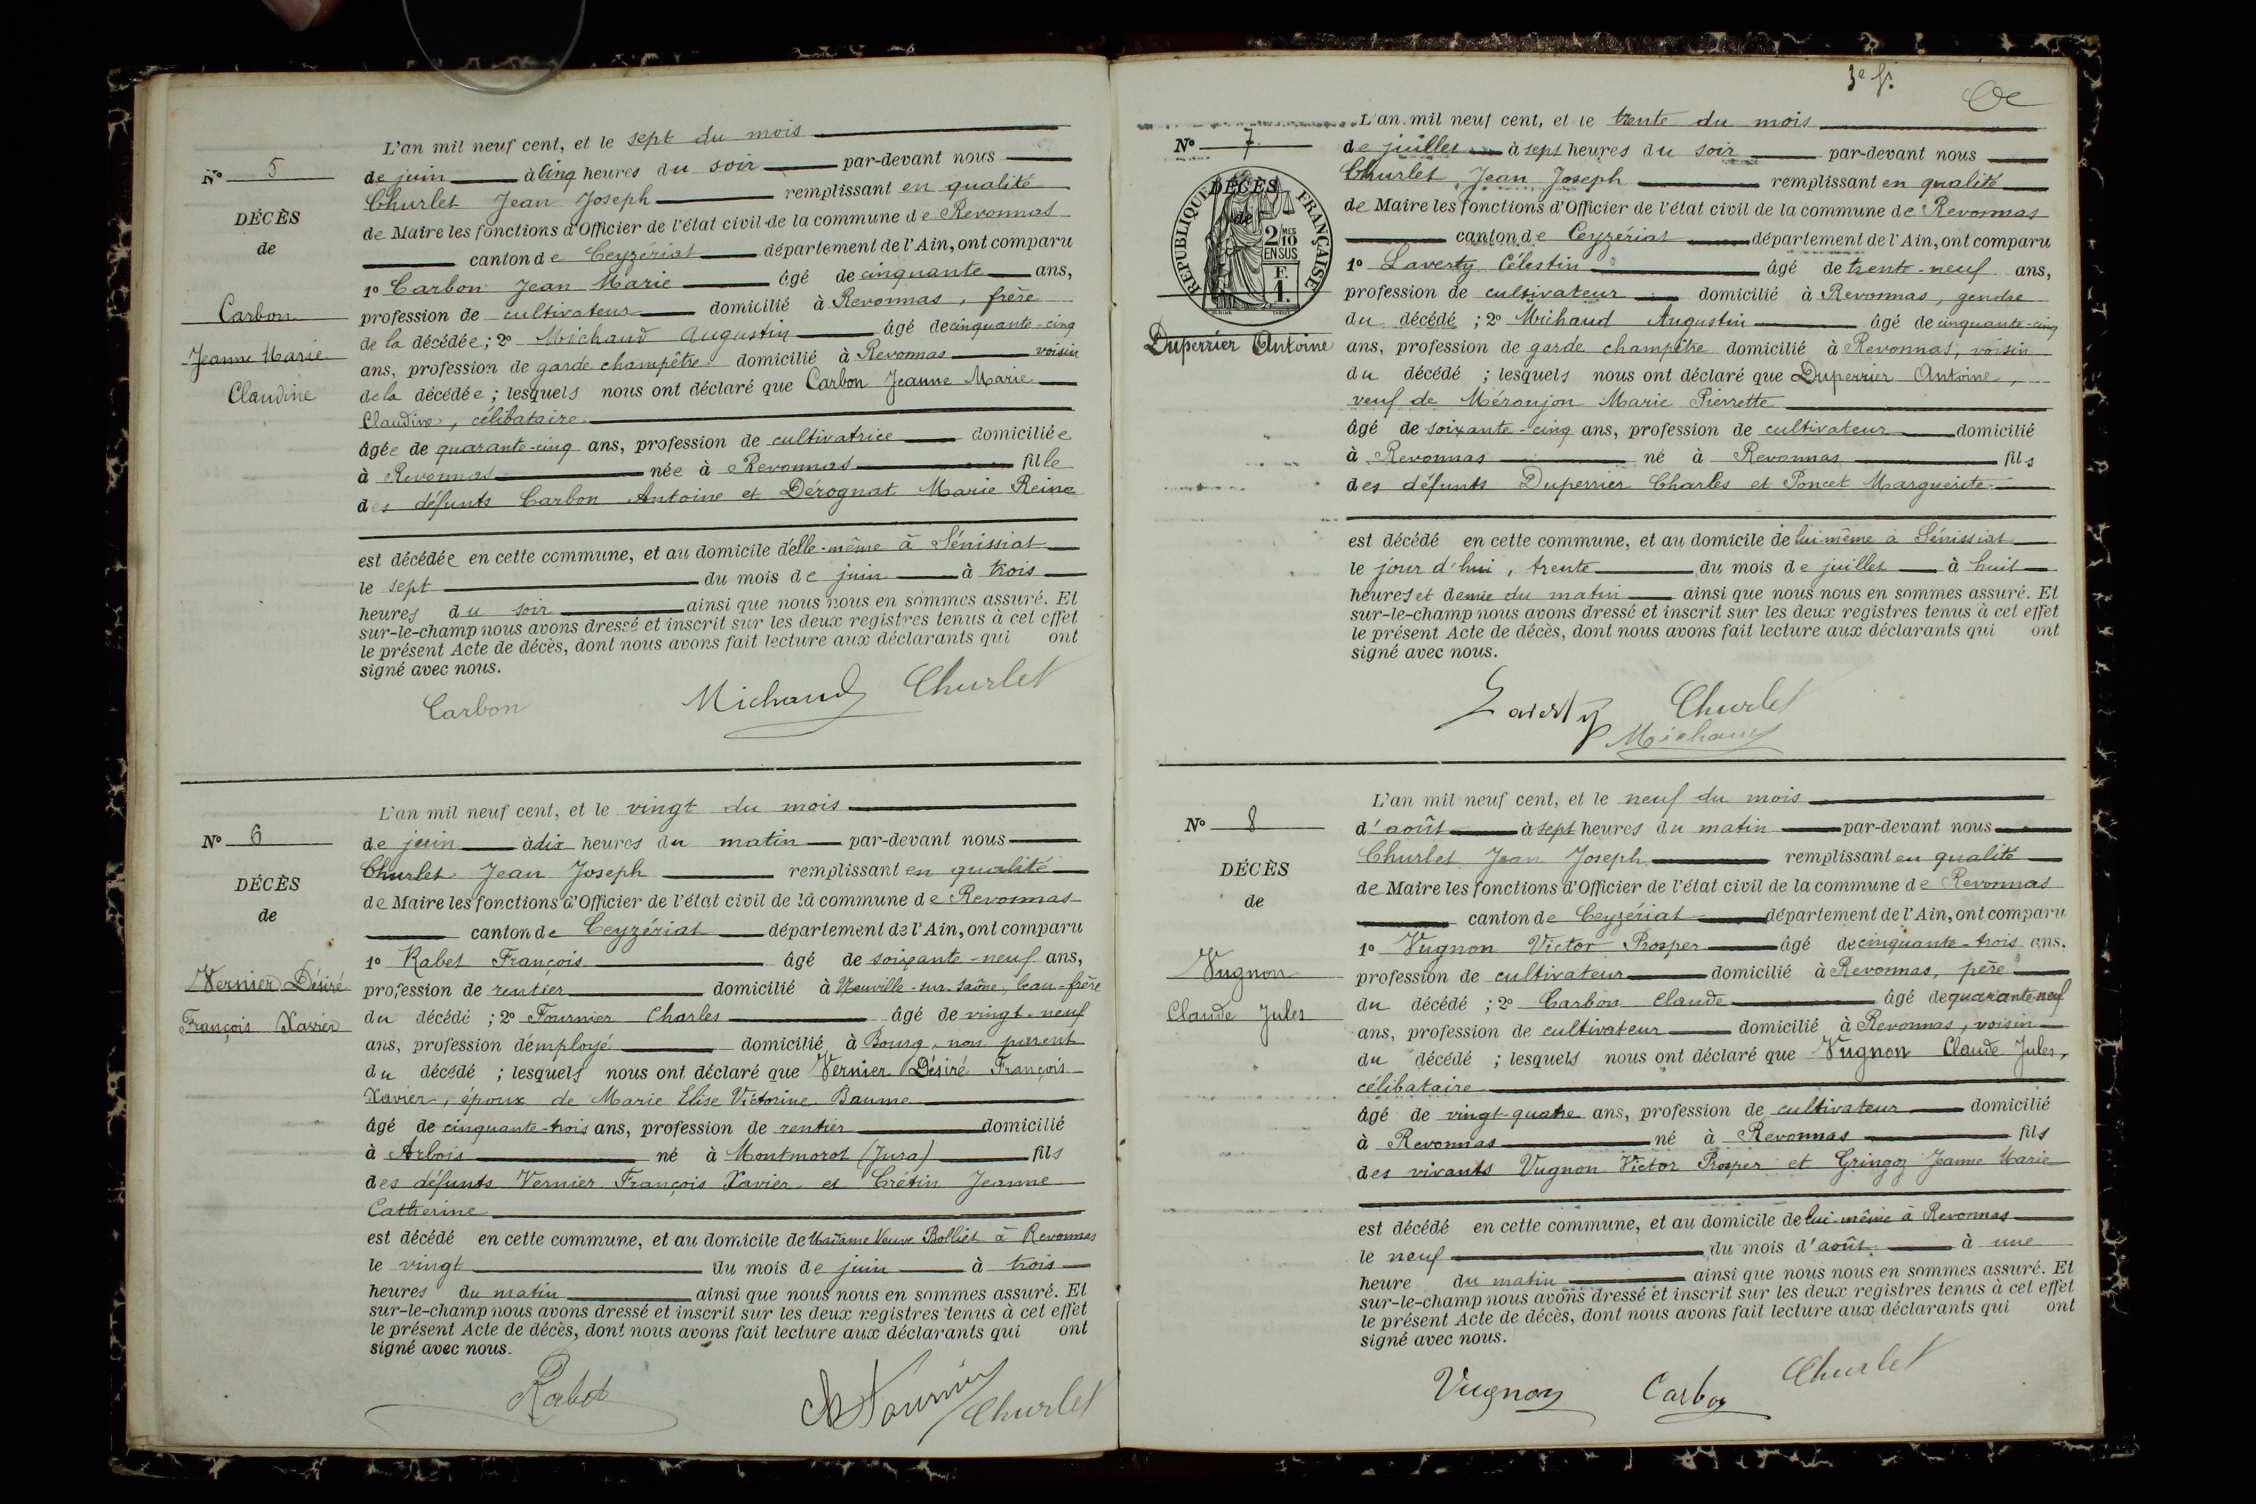 L'an mil neuf cent, et le sept du mois
N° 5
de juin à cinq heures du soir par-devant nous
Churlet Jean Joseph remplissant en qualité
DÉCÈS
de Maire les fonctions d'Officier de l'état civil de la commune de Revonnas
de
canton de Ceyzériat département de l'Ain, ont comparu
1° Carbon Jean Marie âgé de cinquante ans,
Carbon
profession de cultivateur domicilié à Revonnas, frère
de la décédée; 2° Michaud Augustin âgé de cinquante-cinq
Jeanne Marie
ans, profession de garde champêtre domicilié à Revonnas voisin
Claudine
de la décédée; lesquels nous ont déclaré que Carbon Jeanne Marie
Claudine, célibataire
âgée de quarante-cinq ans, profession de cultivatrice domiciliée
à Revonnas née à Revonnas fille
des défunts Carbon Antoine et Dérognat Marie Reine
est décédée en cette commune, et au domicile d'elle-même à Sénissiat
le sept du mois de juin à trois
heures du soir ainsi que nous nous en sommes assuré. Et
sur-le-champ nous avons dressé et inscrit sur les deux registres tenus à cet effet
le présent Acte de décès, dont nous avons fait lecture aux déclarants qui ont
signé avec nous.
Carbon Michaud Churlet
L'an mil neuf cent, et le vingt du mois
N° 6
de juin à dix heures du matin par-devant nous
Churlet Jean Joseph remplissant en qualité
DÉCÈS
de Maire les fonctions d'Officier de l'état civil de la commune de Revonnas
de
canton de Ceyzériat département de l'Ain, ont comparu
1° Rabet François âgé de soixante-neuf ans,
Vernier Désiré
profession de rentier domicilié à Neuville-sur-Saône, beau-frère
François Xavier
du décédé; 2° Fournier Charles âgé de vingt-neuf
ans, profession d'employé domicilié à Bourg, non parent
du décédé; lesquels nous ont déclaré que Vernier Désiré François
Xavier, époux de Marie Elise Victorine Baume
âgé de cinquante-trois ans, profession de rentier domicilié
à Arbois né à Montmorot (Jura) fils
des défunts Vernier François Xavier et Crétin Jeanne
Catherine
est décédé en cette commune, et au domicile de Madame Veuve Bolliet à Revonnas
le vingt du mois de juin à trois
heures du matin ainsi que nous nous en sommes assuré. Et
sur-le-champ nous avons dressé et inscrit sur les deux registres tenus à cet effet
le présent Acte de décès, dont nous avons fait lecture aux déclarants qui ont
signé avec nous.
Rabet Ch Fournier Churlet
3e f.
L'an mil neuf cent, et le trente du mois
N° 7
de juillet à sept heures du soir par-devant nous
Churlet Jean Joseph remplissant en qualité
DÉCÈS
de
RÉPUBLIQUE FRANÇAISE
2/10 MES EN SUS
F. 1.
de Maire les fonctions d'Officier de l'état civil de la commune de Revonnas
canton de Ceyzériat département de l'Ain, ont comparu
1° Laverty Célestin âgé de trente-neuf ans,
profession de cultivateur domicilié à Revonnas, gendre
du décédé; 2° Michaud Augustin âgé de cinquante-cinq
Duperrier Antoine
ans, profession de garde champêtre domicilié à Revonnas, voisin
du décédé; lesquels nous ont déclaré que Duperrier Antoine,
veuf de Méroujon Marie Pierrette
âgé de soixante-cinq ans, profession de cultivateur domicilié
à Revonnas né à Revonnas fils
des défunts Duperrier Charles et Poncet Marguerite
est décédé en cette commune, et au domicile de lui-même à Sénissiat
le jour d'hui, trente du mois de juillet à huit
heures et demie du matin ainsi que nous nous en sommes assuré. Et
sur-le-champ nous avons dressé et inscrit sur les deux registres tenus à cet effet
le présent Acte de décès, dont nous avons fait lecture aux déclarants qui ont
signé avec nous.
Laverty Churlet
Michaud
L'an mil neuf cent, et le neuf du mois
N° 8
d'août à sept heures du matin par-devant nous
Churlet Jean Joseph remplissant en qualité
DÉCÈS
de Maire les fonctions d'Officier de l'état civil de la commune de Revonnas
de
canton de Ceyzériat département de l'Ain, ont comparu
1° Vugnon Victor Prosper âgé de cinquante-trois ans.
Vugnon
profession de cultivateur domicilié à Revonnas, père
Claude Jules
du décédé; 2° Carbon Claude âgé de quarante-neuf
ans, profession de cultivateur domicilié à Revonnas, voisin
du décédé; lesquels nous ont déclaré que Vugnon Claude Jules,
célibataire
âgé de vingt-quatre ans, profession de cultivateur domicilié
à Revonnas né à Revonnas fils
des vivants Vugnon Victor Prosper et Gringoz Jeanne Marie
est décédé en cette commune, et au domicile de lui-même à Revonnas
le neuf du mois d'août à une
heure du matin ainsi que nous nous en sommes assuré. Et
sur-le-champ nous avons dressé et inscrit sur les deux registres tenus à cet effet
le présent Acte de décès, dont nous avons fait lecture aux déclarants qui ont
signé avec nous.
Vugnon Carbon Churlet